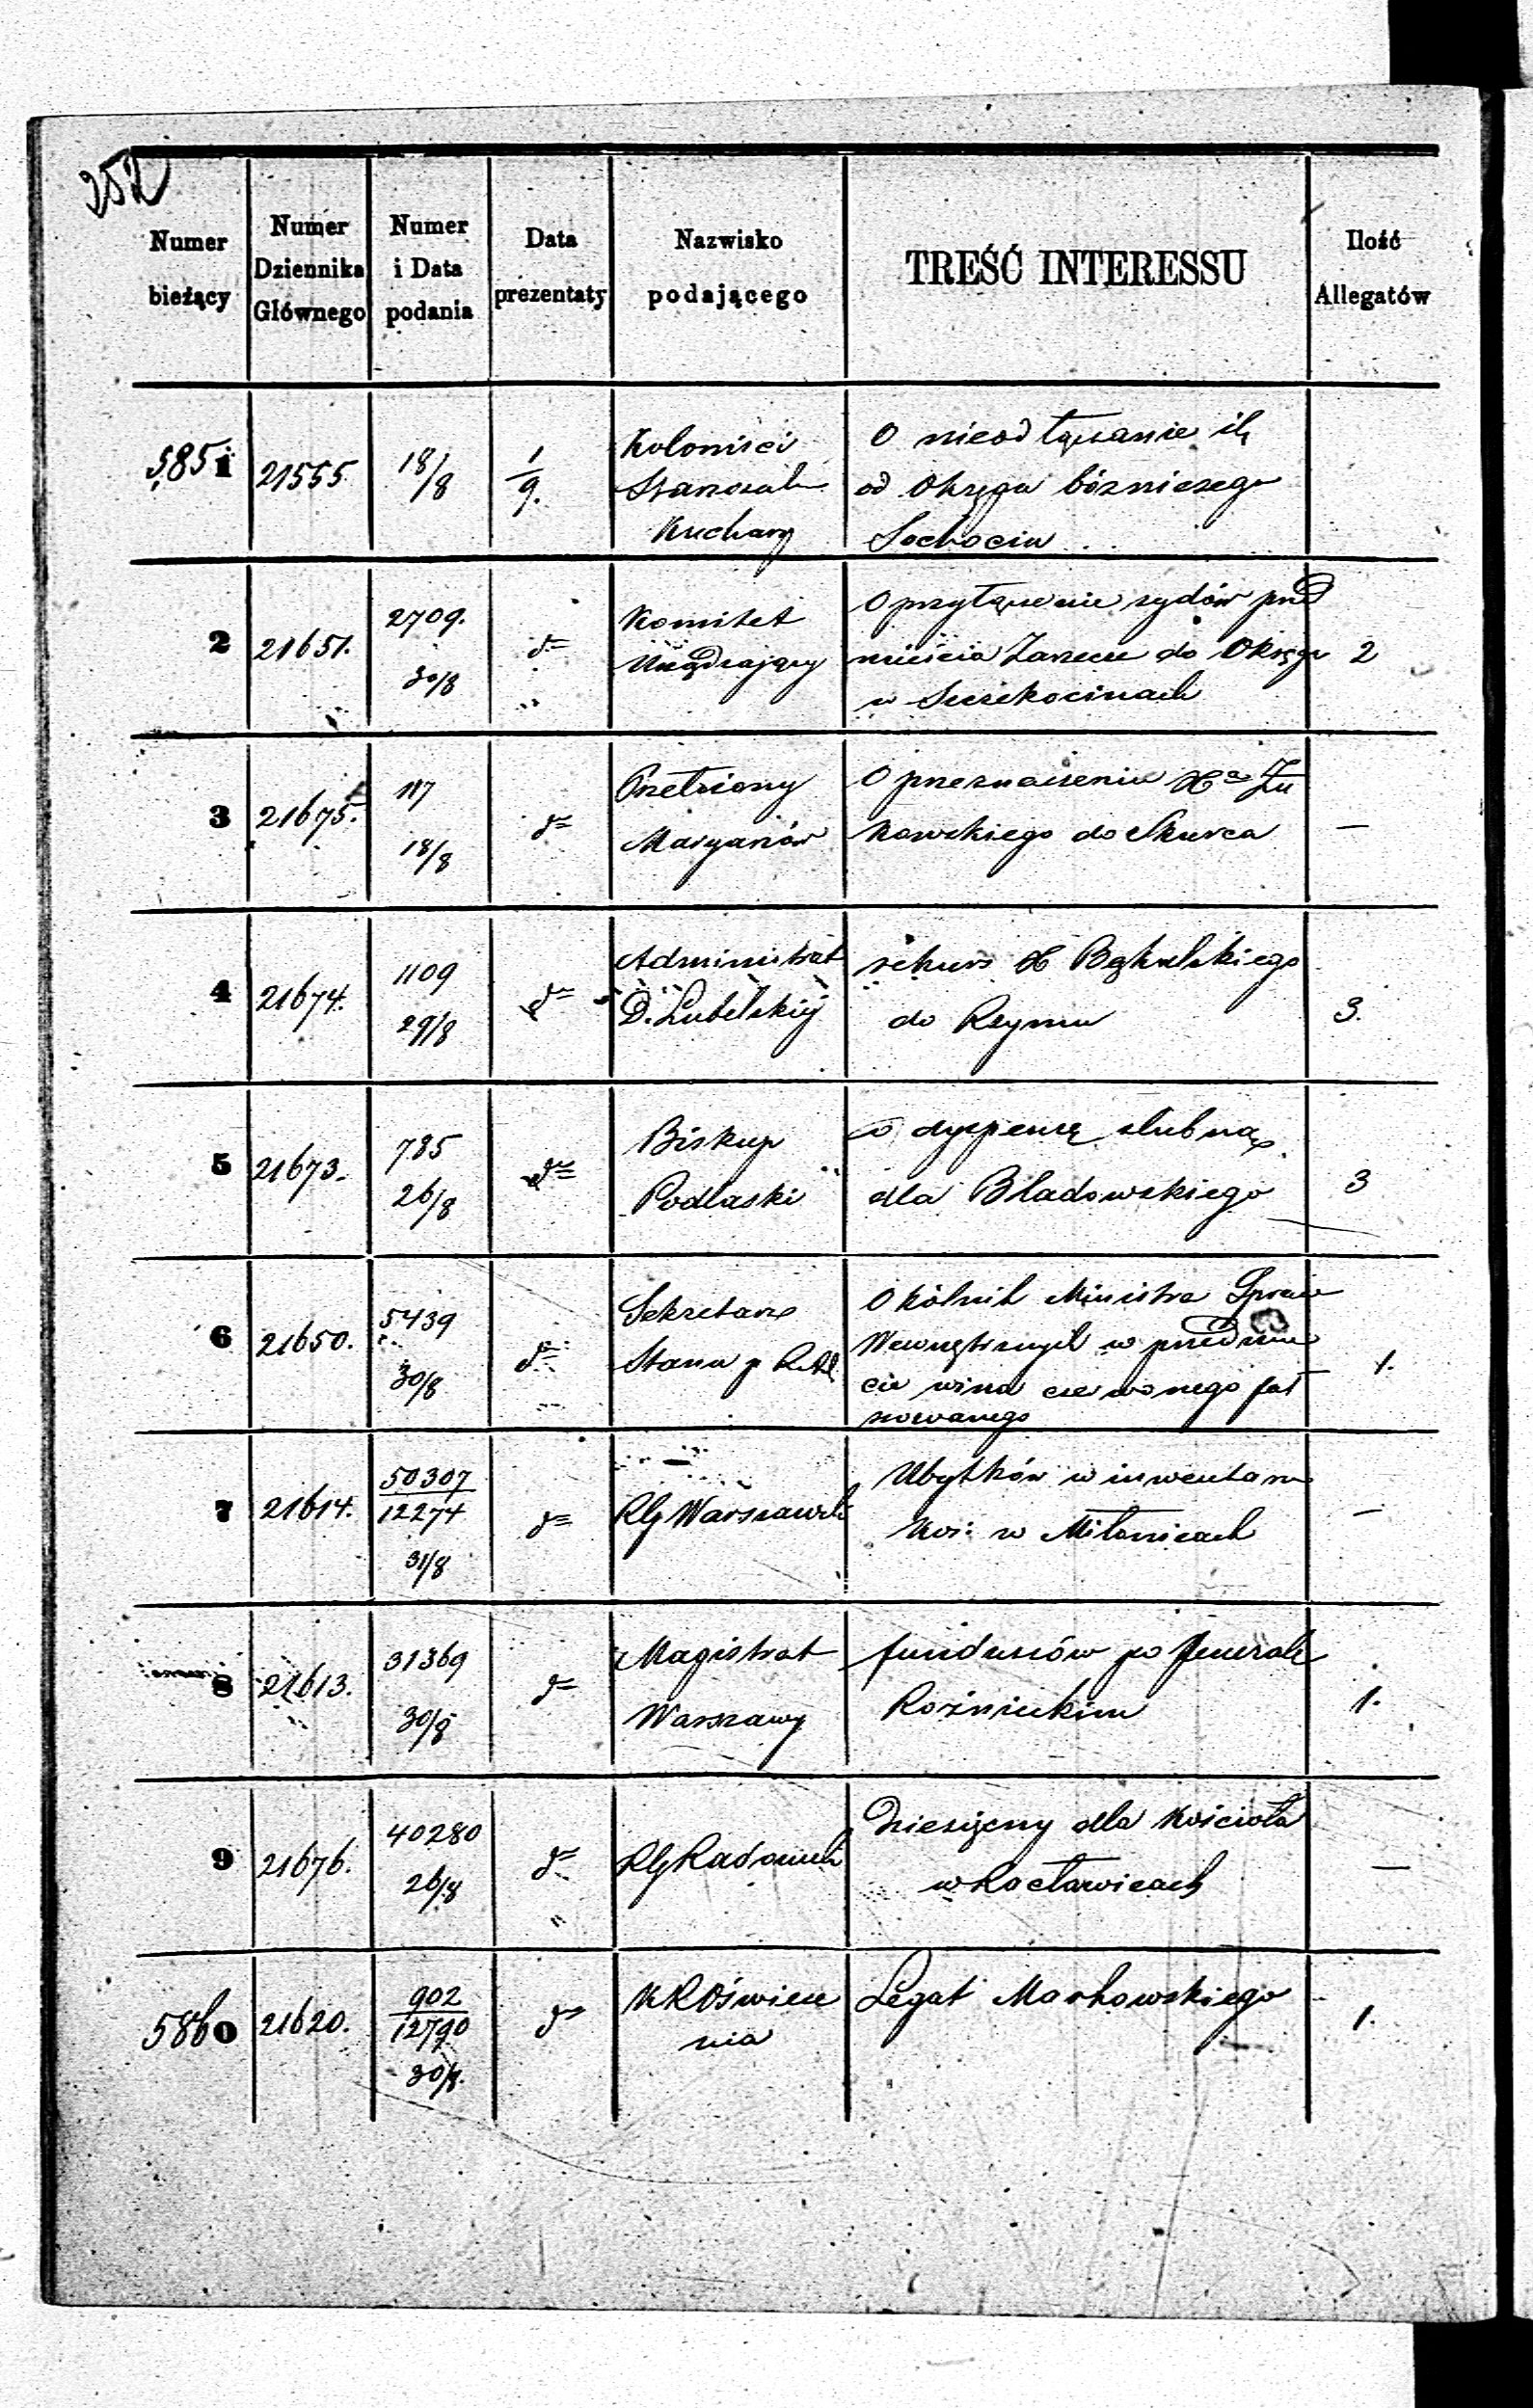 252
Numer bieżący
Numer Dziennika Głównego
Numer i Data podania
Data prezentaty
Nazwisko podającego
TREŚĆ INTERESSU
Ilość Allegatów
5851
21555
18/8
1/9.
Koloniści
Kuchary
O nieodłączanie ich
od Okręgu bóżniczego
Sochocin
2
21651.
2709.
30/8
d=
Komitet
Urządzający
O przyłączenie żydów przed
mieścia Zarzecze do Okręgu
w Szczekocinach
2
3
21675.
117
18/8
d=
Przełożony
Maryanów
O przeznaczeniu Xa Żu
kowskiego do Skurca
—
4
21674.
1109
29/8
d=
Administrat
D. Lubelskiéj
rekurs X
do Rzymu
3.
5
21673.
785
26/8
d=
Biskup
Podlaski
o dyspensę ślubną
dla Bladowskiego
3
6
21650.
5439
30/8
d=
Sekretarz
Stanu p
Okólnik Ministra Spraw
Wewnętrznych w przedmio
cie wina czerwonego fał
szowanego
1.
7
21614.
50307
12274
31/8
d=
RG Warszawski
Ubytków w inwentarzu
Koś: w Mitonicach
—
8
21613.
31369
30/8
d=
Magistrat
Warszawy
funduszów po Jenerale
Rożnieckim
1.
9
21676.
40280
26/8
d=
RG Radomski
Dziesięciny dla Kościoła
w Racławicach
—
5860
21620.
902
12790
30/8.
d=
KROświece
nia
Legat Markowskiego
1.